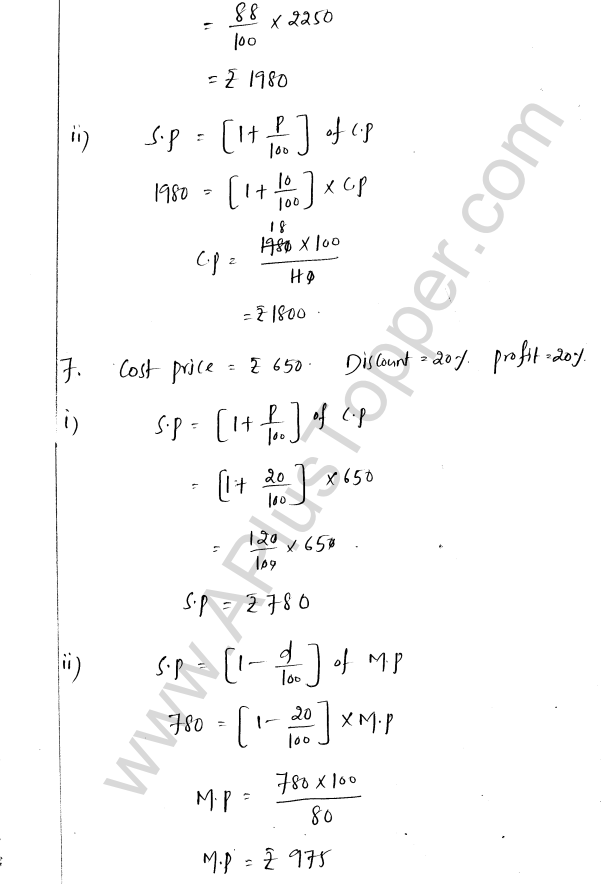 = 88/100 × 2250
= ₹ 1980
ii) S.P = [1 + P/100] of C.P
1980 = [1 + 10/100] × C.P
18
C.P = 1980 × 100 / 110
= ₹ 1800.
7. Cost price = ₹ 650. Discount = 20%. profit = 20%.
i) S.P = [1 + P/100] of C.P
= [1 + 20/100] × 650
= 120/100 × 650.
S.P = ₹ 780
ii) S.P = [1 - d/100] of M.P
780 = [1 - 20/100] × M.P
M.P = 780 × 100 / 80
M.P = ₹ 975
www.APlusTopper.com